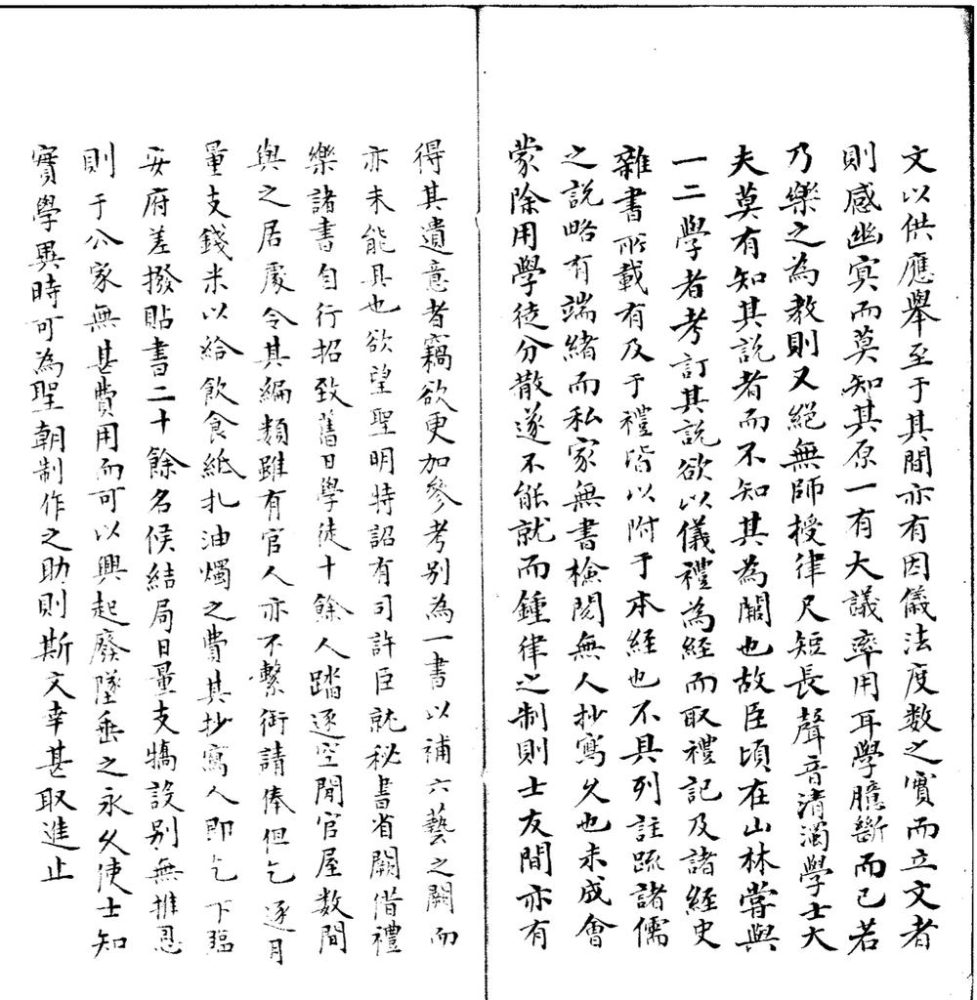 文以供應舉至于其間亦有因儀法度数之實而立文者
則感幽冥而莫知其原一有大議率用耳學臆斷而已若
乃樂之為教則又絕無師授律尺短長聲音清濁學士大
夫莫有知其說者而不知其為闕也故臣頃在山林嘗與
一二學者考訂其說欲以儀禮為經而取禮記及諸經史
雜書所載有及于禮皆以附于本經也不具列註疏諸儒
之說略有端緒而私家無書檢閱無人抄寫久也未成會
蒙除用學徒分散遂不能就而鍾律之制則士友間亦有
得其遺意者竊欲更加參考别為一書以補六藝之闕而
亦未能具也欲望聖明特詔有司許臣就秘書省闕借禮
樂諸書自行招致舊日學徒十餘人踏逐空閒官屋数間
與之居處令其編類雖有官人亦不繫衘請俸但乞逐月
量支錢米以給飲食紙扎油燭之費其抄寫人即乞下臨
安府差撥貼書二十餘名候結局日量支犒設别無推恩
則于公家無甚費用而可以興起廢墜垂之永久使士知
實學異時可為聖朝制作之助則斯文幸甚取進止